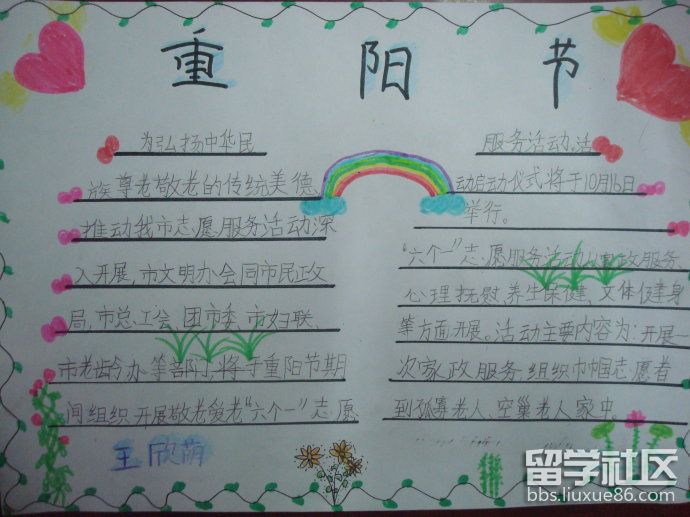 重阳节
为弘扬中华民
族尊老敬老的传统美德
推动我市志愿服务活动深
入开展,市文明办会同市民政
局,市总工会、团市委、市妇联、
市老龄办等部门,将于重阳节期
间组织开展敬老爱老“六个一”志愿
王欣荫
服务活动,活
动启动仪式将于10月16日
举行。
“六个一”志愿服务活动从家政服务
心理抚慰、养生保健、文体健身
等方面开展。活动主要内容为:开展一
次家政服务,组织巾帼志愿者
到孤寡老人、空巢老人家中。
留学社区
bbs.liuxue86.com